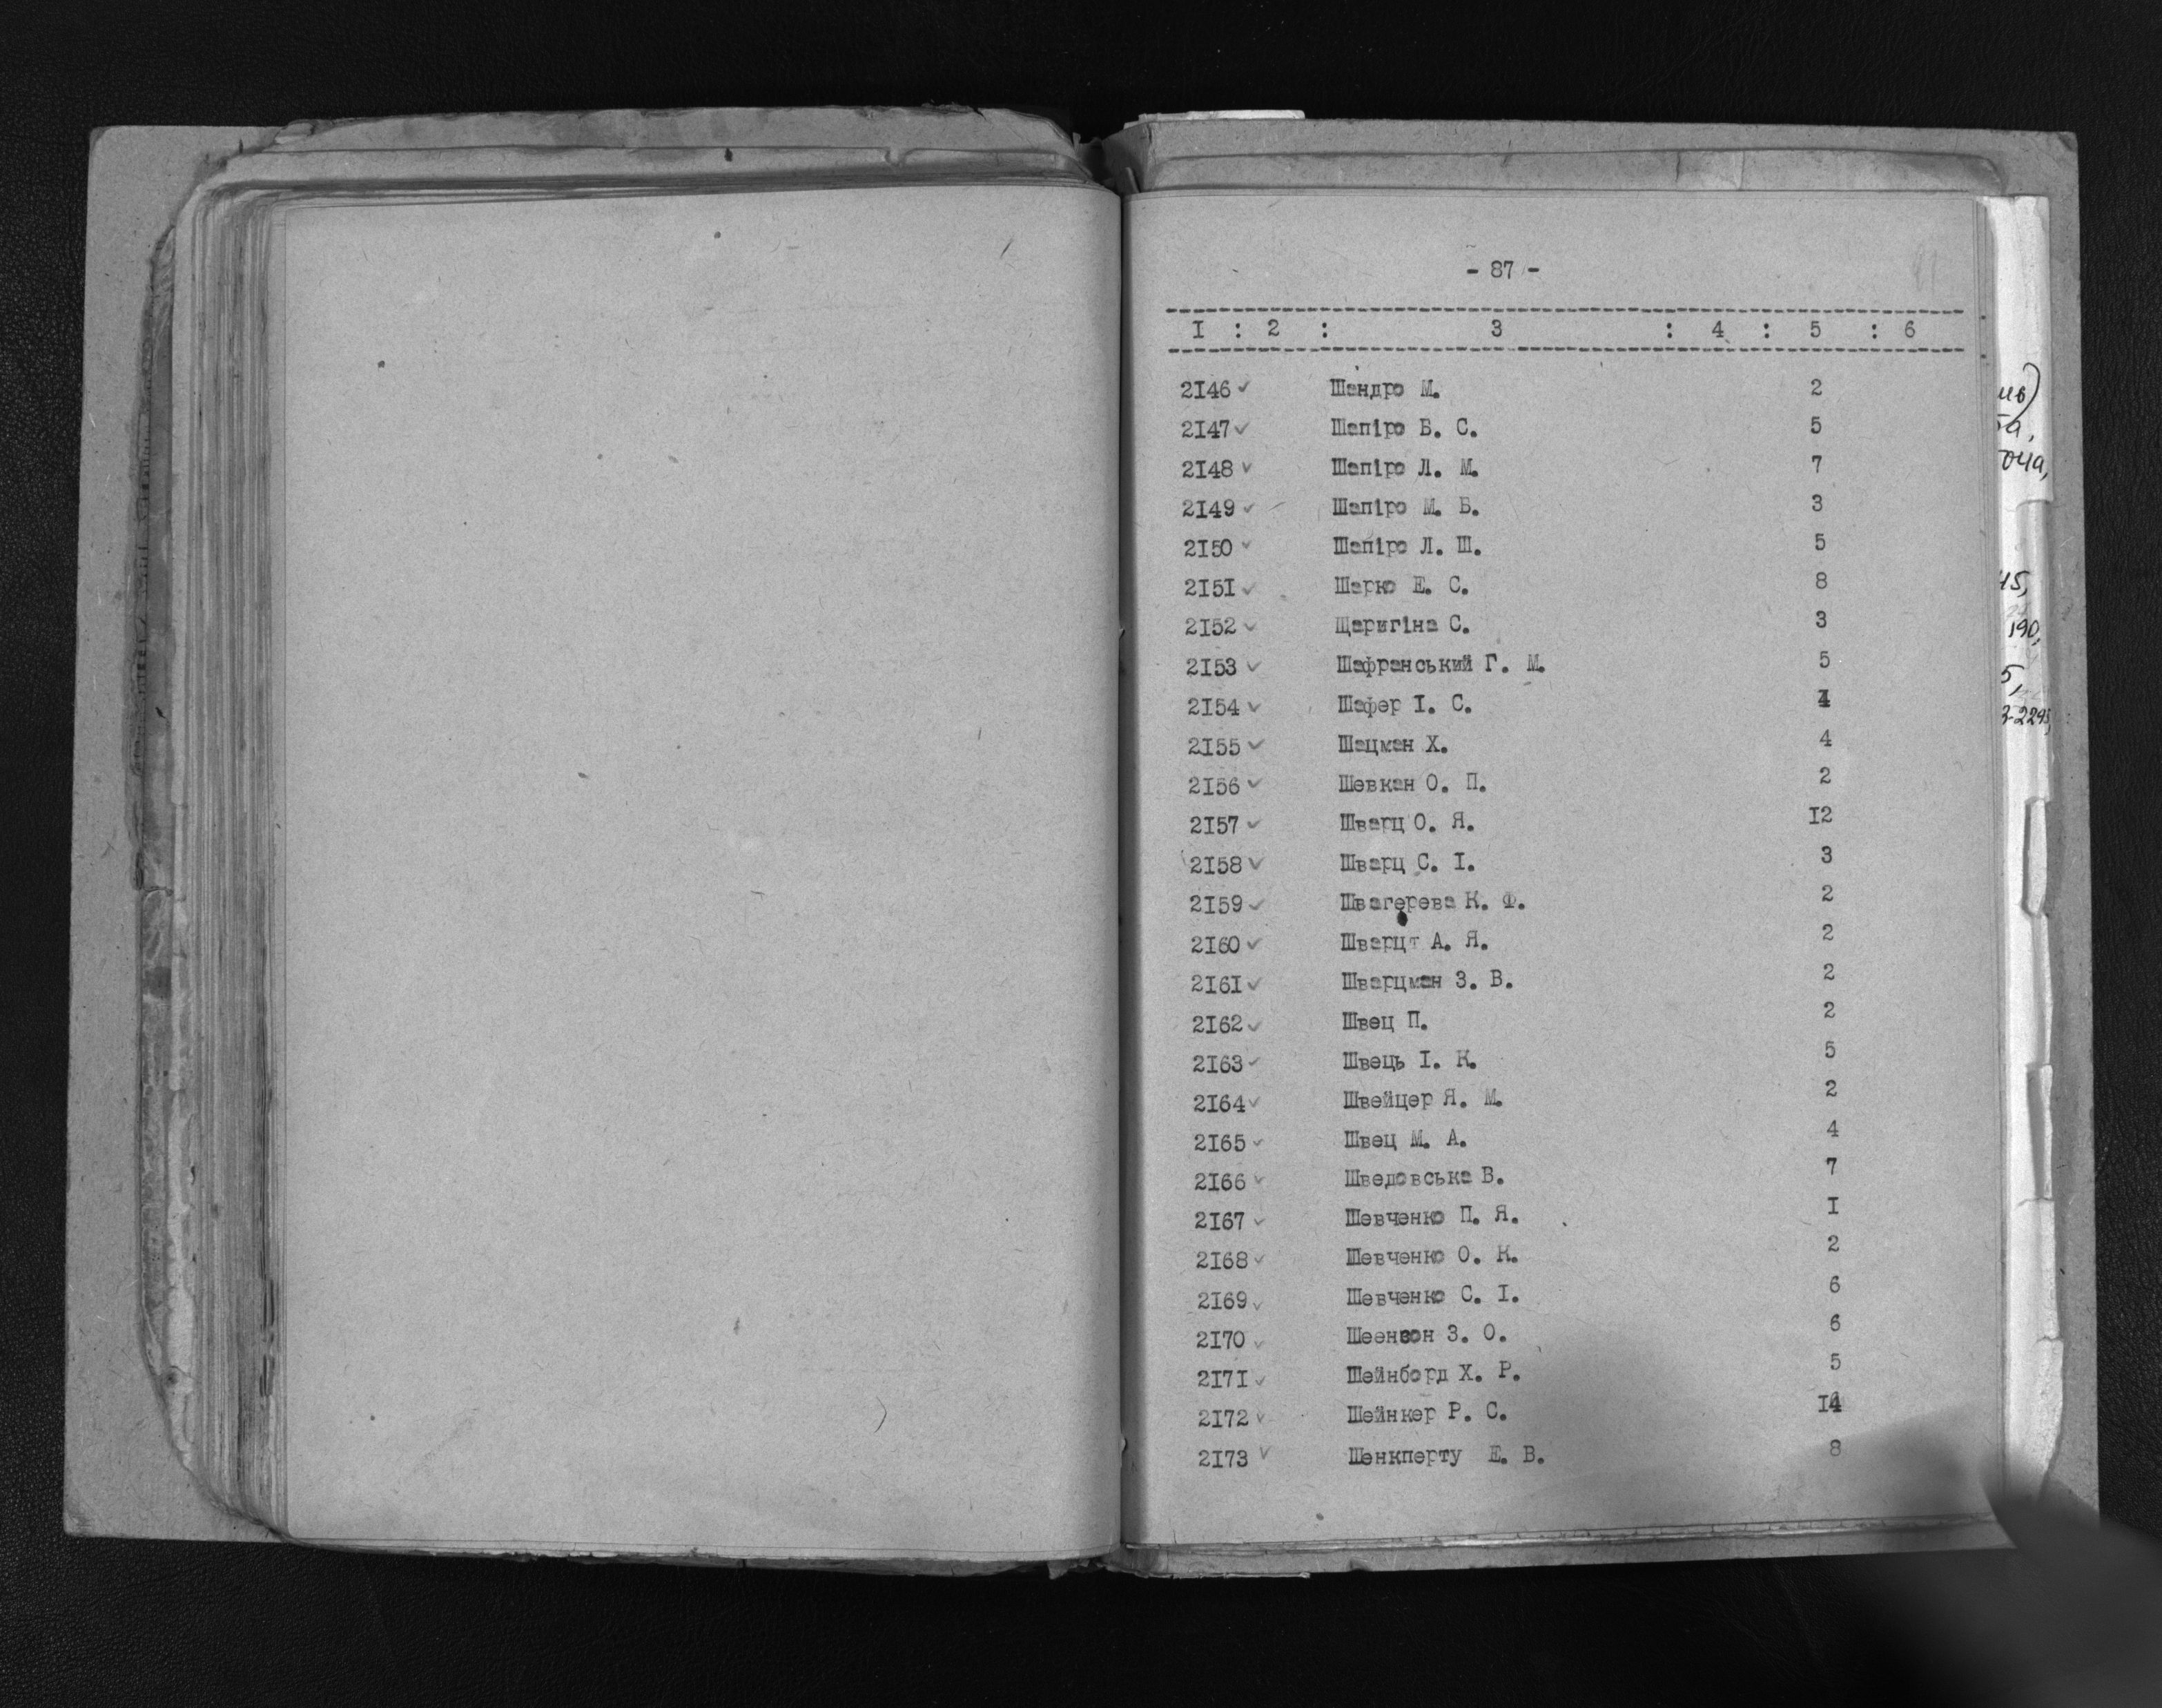 - 87 -
I : 2 : 3 : 4 : 5 : 6
2I46 ✓ Шандро М. 2
2I47 ✓ Шапіро Б. С. 5
2I48 ✓ Шапіро Л. М. 7
2I49 ✓ Шапіро М. Б. 3
2I50 ✓ Шапіро Л. Ш. 5
2I5I ✓ Шарко Е. С. 8
2I52 ✓ Щаригіна С. 3
2I53 ✓ Шафранський Г. М. 5
2I54 ✓ Шафер І. С. 4
2I55 ✓ Шацман Х. 4
2I56 ✓ Шевкан О. П. 2
2I57 ✓ Шварц О. Я. I2
2I58 ✓ Шварц С. І. 3
2I59 ✓ Швагерева К. Ф. 2
2I60 ✓ Шварцт А. Я. 2
2I6I ✓ Шварцман З. В. 2
2I62 ✓ Швец П. 2
2I63 ✓ Швець І. К. 5
2I64 ✓ Швейцер Я. М. 2
2I65 ✓ Швец М. А. 4
2I66 ✓ Шведовська В. 7
2I67 ✓ Шевченко П. Я. I
2I68 ✓ Шевченко О. К. 2
2I69 ✓ Шевченко С. І. 6
2I70 ✓ Шеензон З. О. 6
2I7I ✓ Шейнборд Х. Р. 5
2I72 ✓ Шейнкер Р. С. I4
2I73 ✓ Шенкперту Е. В. 8